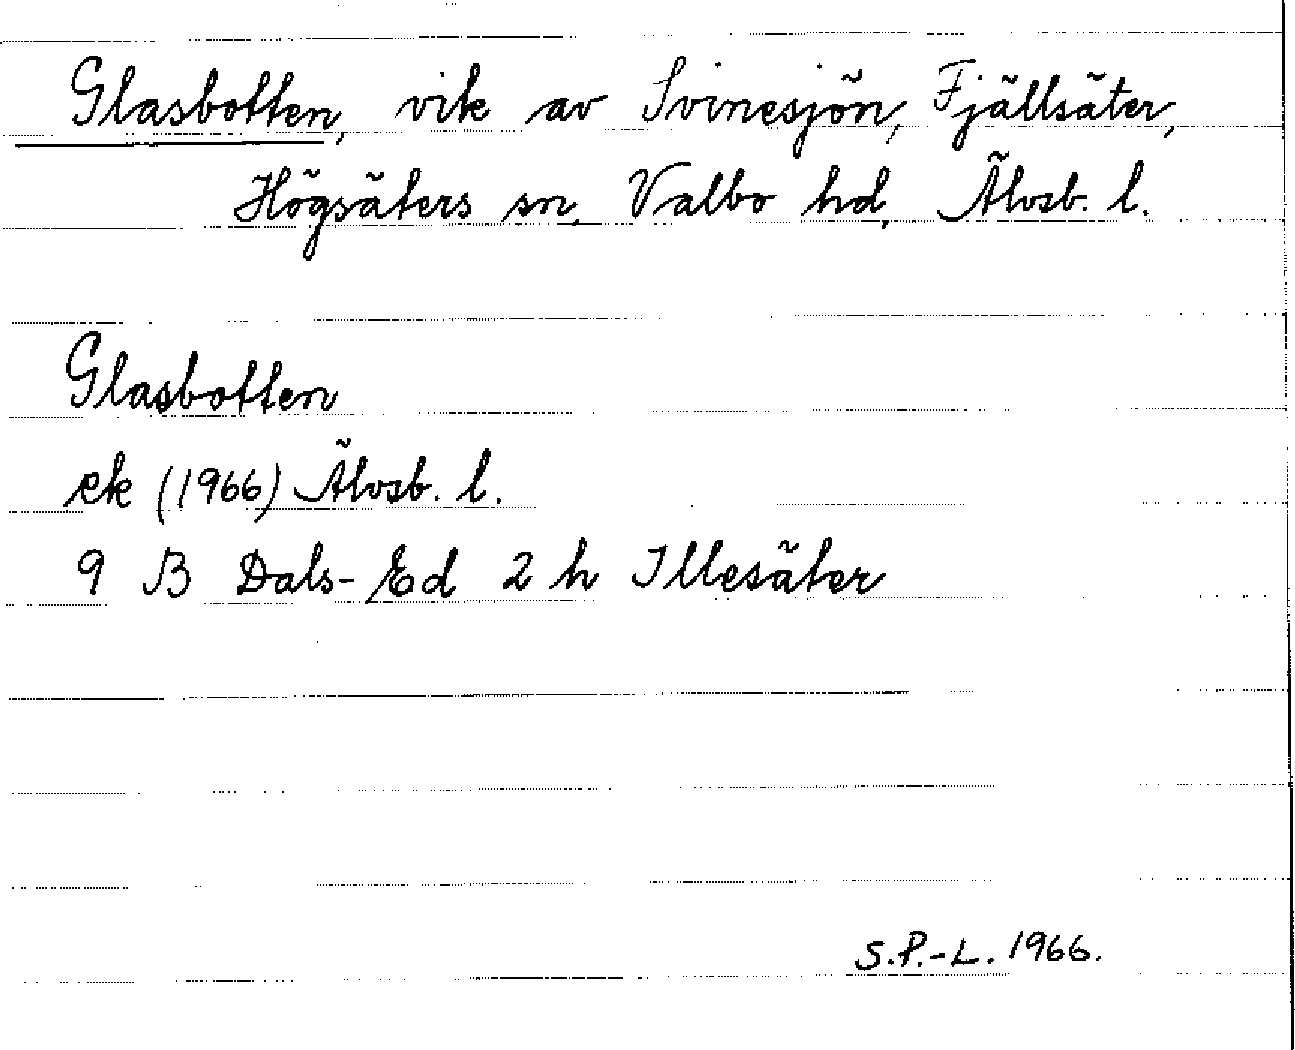 Glasbotten, vik av Svinesjön, Fjällsäter,
Högsäters sn, Valbo hd, Älvsb. l.
Glasbotten
ek (1966) Älvsb. l.
9 B Dals-Ed 2 h Illesäter
S.P.-L. 1966.